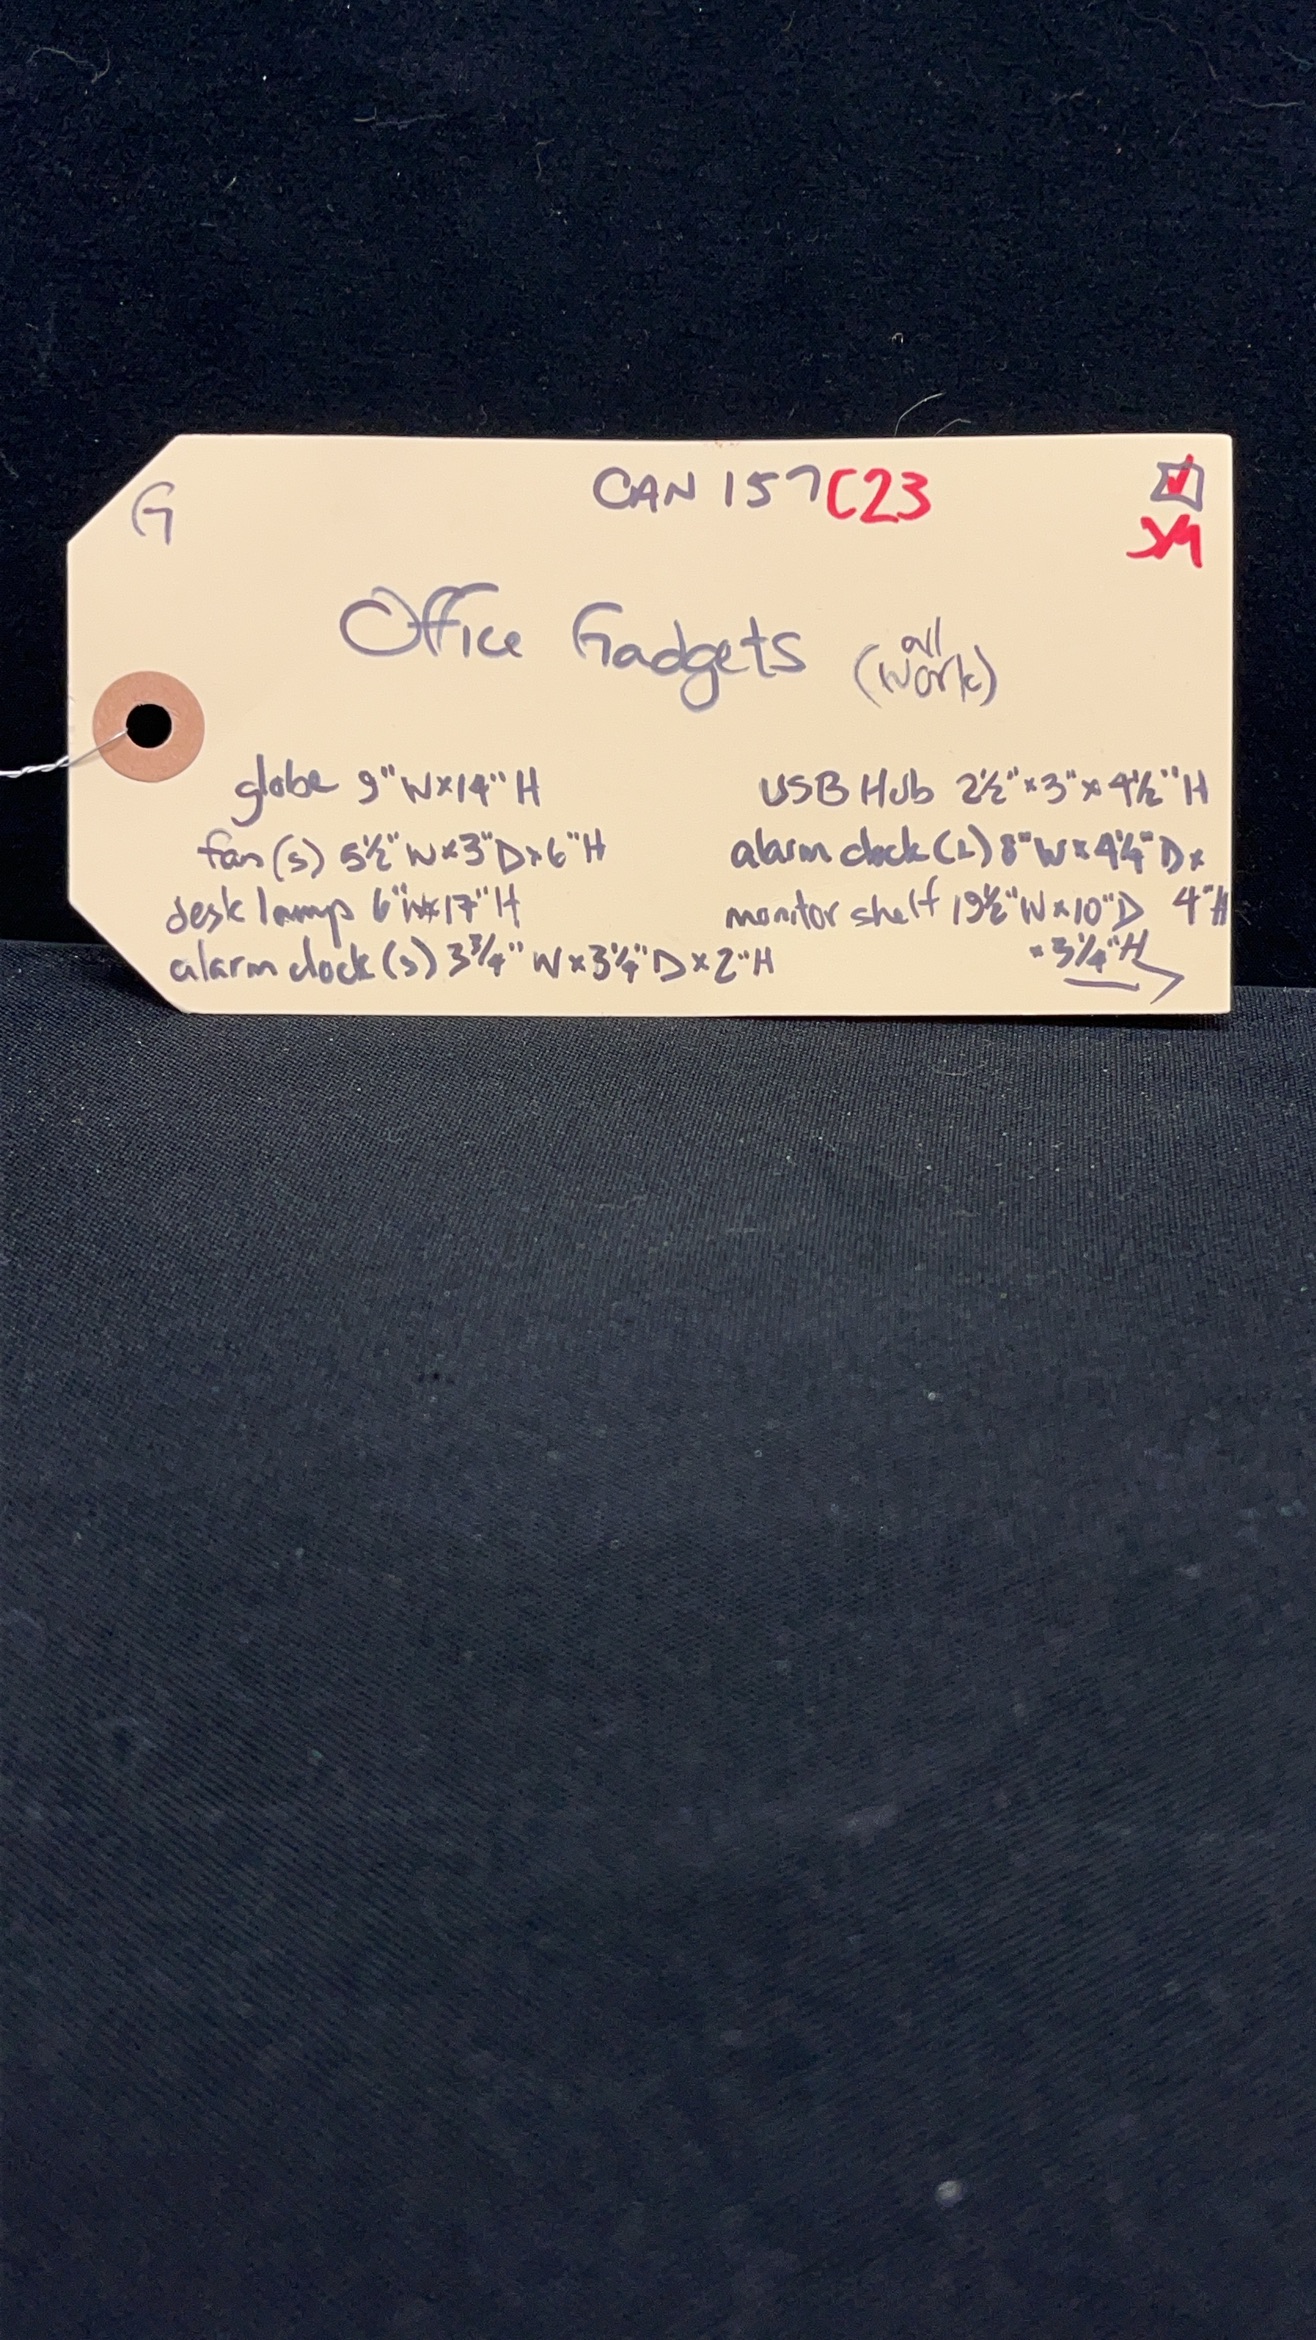 G
CAN 157C23
Office Gadgets (all work)
globe 9" W x 14" H
fan (s) 5½" W x 3" D x 6" H
desk lamp 6" W x 17" H
alarm clock (s) 3¾" W x 3¼" D x 2" H
USB Hub 2½" x 3" x 4½" H
alarm clock (L) 8" W x 4¼" D x 4" H
monitor shelf 19½" W x 10" D
x 3¼" H